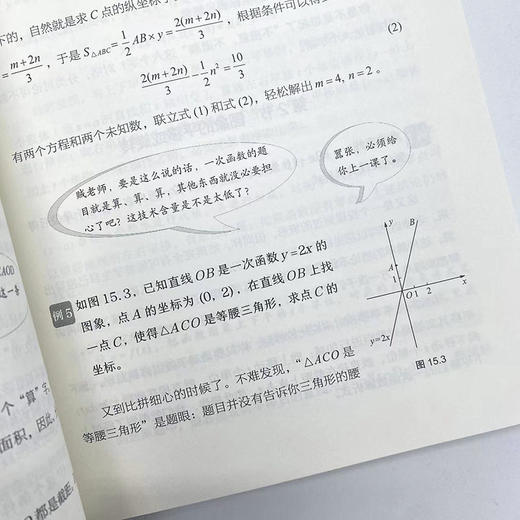 下的，自然就是求 C 点的纵坐标
= (m+2n)/3，于是 S△ABC = 1/2 AB × y = 2(m+2n)/3，根据条件可以得
2(m+2n)/3 − 1/2 n² = 10/3 (2)
有两个方程和两个未知数，联立式 (1) 和式 (2)，轻松解出 m = 4, n = 2 。
贼老师，要是这么说的话，一次函数的题
目就是算、算、算，其他东西就没必要担
心了吧？这技术含量是不是太低了？
嚣张，必须给
你上一课了。
例 5 如图 15.3，已知直线 OB 是一次函数 y=2x 的
图象，点 A 的坐标为 (0, 2)，在直线 OB 上找
一点 C，使得△ACO 是等腰三角形，求点 C 的
坐标。
y
B
A
1
O 1 2 x
y=2x
图 15.3
又到比拼细心的时候了。不难发现，“△ACO 是
等腰三角形”是题眼：题目并没有告诉你三角形的腰
AOD
这一条
个“算”字
面积，因此
都是截距